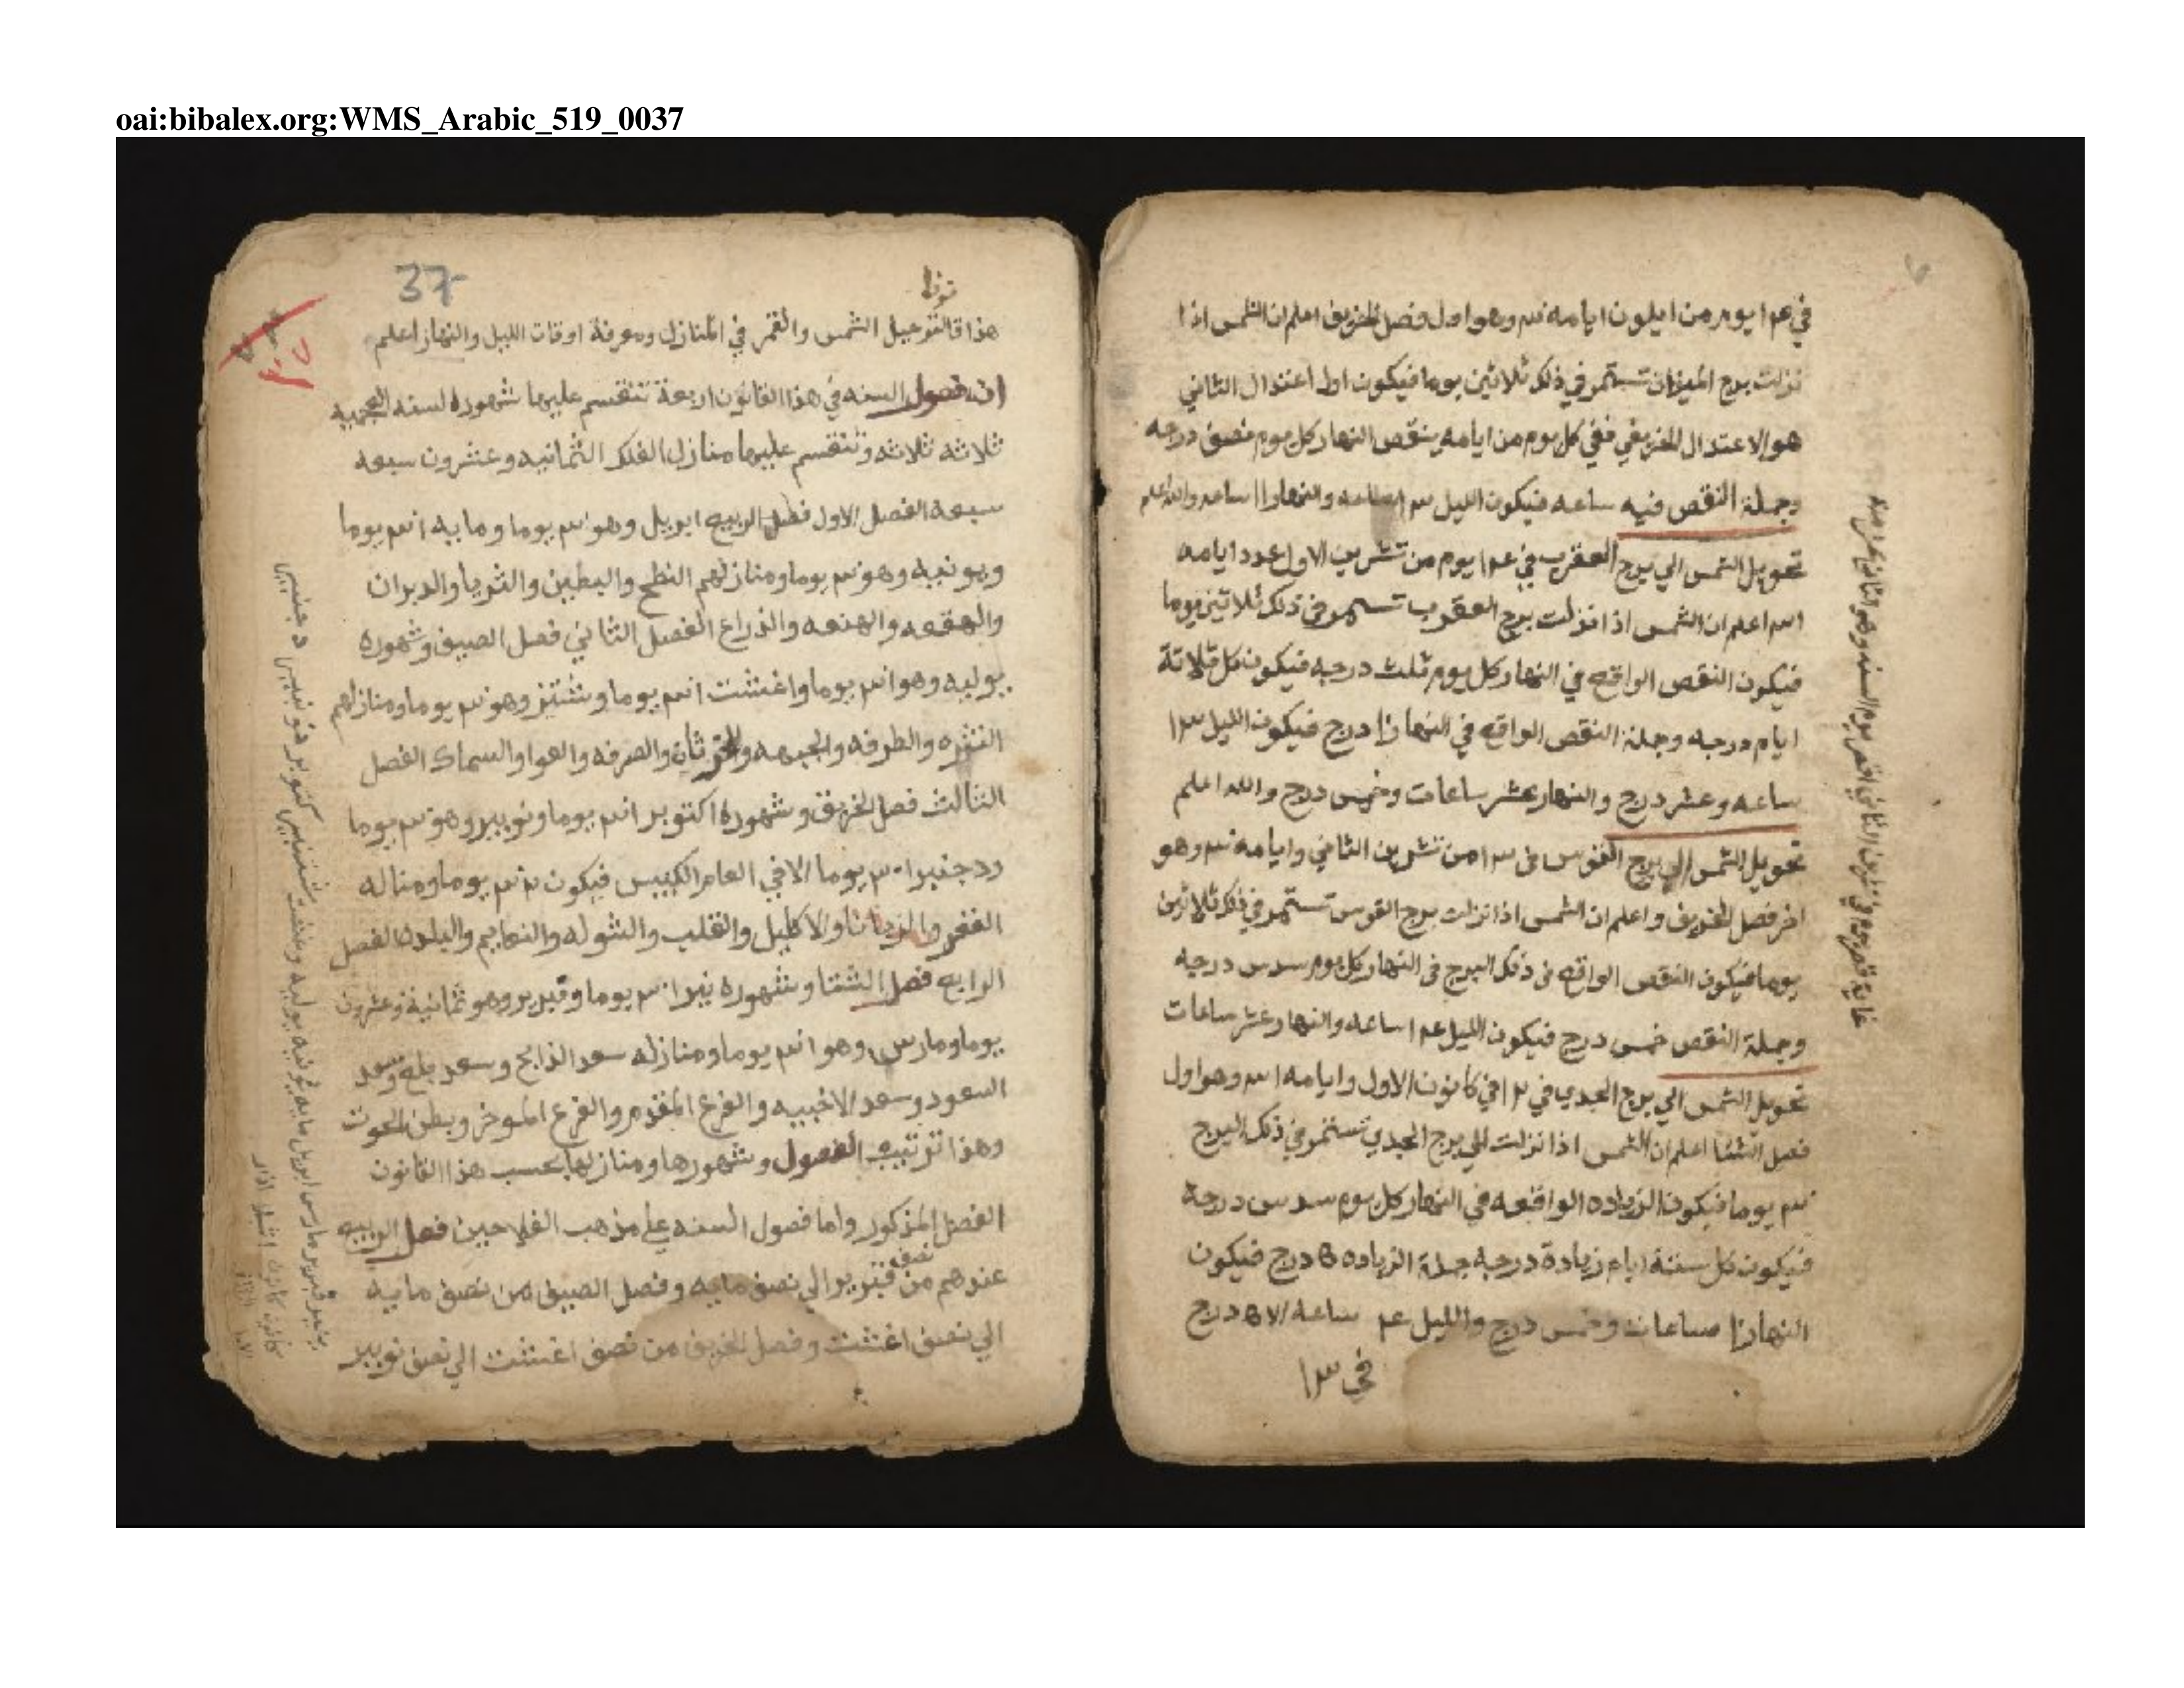 oai:bibalex.org:WMS_Arabic_519_0037
في ١٤ يوم من ايلون ايامه ٣٠ وهو اول فصل الخريف اعلم ان الشمس اذا
نزلت برج الميزان تستمر في ذلك ثلاثين يوما فيكون اول اعتدال الثاني
هو الاعتدال الخريفي ففي كل يوم من ايامه ينقص النهار كل يوم نصف درجه
وجملة النقص فيه ساعه فيكون الليل ١٣ ساعه والنهار ١١ ساعه والله اعلم
تحويل الشمس الي برج العقرب في ١٤ يوم من تشرين الاول عدد ايامه
٣١ اعلم ان الشمس اذا نزلت برج العقرب تستمر في ذلك ثلاثين يوما
فيكون النقص الواقع في النهار كل يوم ثلث درجه فيكون كل ثلاثة
ايام درجه وجملة النقص الواقع في النهار ١٠ درج فيكون الليل ١٣
ساعه وعشر درج والنهار عشر ساعات وخمس درج والله اعلم
تحويل الشمس الي برج القوس في ١٣ من تشرين الثاني وايامه ٣٠ وهو
اخر فصل الخريف واعلم ان الشمس اذا نزلت برج القوس تستمر في ذلك ثلاثين
يوما فيكون النقص الواقع في ذلك البرج في النهار كل يوم سدس درجه
وجملة النقص خمس درج فيكون الليل ١٤ ساعه والنهار عشر ساعات
تحويل الشمس الي برج الجدي في ١٢ في كانون الاول وايامه ٣١ وهو اول
فصل الشتا اعلم ان الشمس اذا نزلت الي برج الجدي تستمر في ذلك البرج
٣٠ يوما فيكون الزياده الواقعه في النهار كل يوم سدس درجة
فيكون كل ستة ايام زيادة درجه جملة الزياده ٥ درج فيكون
النهار ١٠ ساعات وخمس درج والليل ١٤ ساعه الا ٥ درج
في ١٣
37
هذا قا لتوحيل الشمس والقمر في المنازل ومعرفة اوقات الليل والنهار اعلم
ان فصول السنه في هذا القانون اربعة تنقسم عليها شهوره لسنه العجميه
ثلاثه ثلاثه وتنقسم عليها منازل الفلك الثمانيه وعشرون سبعه
سبعه الفصل الاول فصل الربيع ابريل وهو ٣٠ يوما ومايه ٣١ يوما
ويونيه وهو ٣٠ يوما ومنازلهم النطح والبطين والثريا والدبران
والهقعه والهنعه والذراع الفصل الثاني فصل الصيف وشهوره
يوليه وهو ٣١ يوما واغشت ٣١ يوما وشتنبر وهو ٣٠ يوما ومنازلهم
النثره والطرفه والجبهه والخرثان والصرفه والعوا والسماك الفصل
الثالث فصل الخريف وشهوره اكتوبر ٣١ يوما ونونبير وهو ٣٠ يوما
ودجنبر يوما الا في العام الكبيس فيكون يوما ومناله
الغفر والزبانا والاكليل والقلب والشوله والنعايم والبلده الفصل
الرابع فصل الشتا وشهوره نير يوما وفبرير وهو ثمانية وعشرون
يوما ومارس وهو ٣١ يوما ومنازله سعد الذابح وسعد بلع وسعد
السعود وسعد الاخبيه والفرغ المقدم والفرغ الموخر وبطن الحوت
وهذا ترتيب الفصول وشهورها ومنازلها بحسب هذا القانون
الفصل المذكور واما فصول السنه علي مذهب الفلاحين فصل الربيع
عندهم من نصف فبرير الي نصف مايه وفصل الصيف من نصف مايه
الي نصف اغشت وفصل الخريف من نصف اغشت الي نصف نونبير